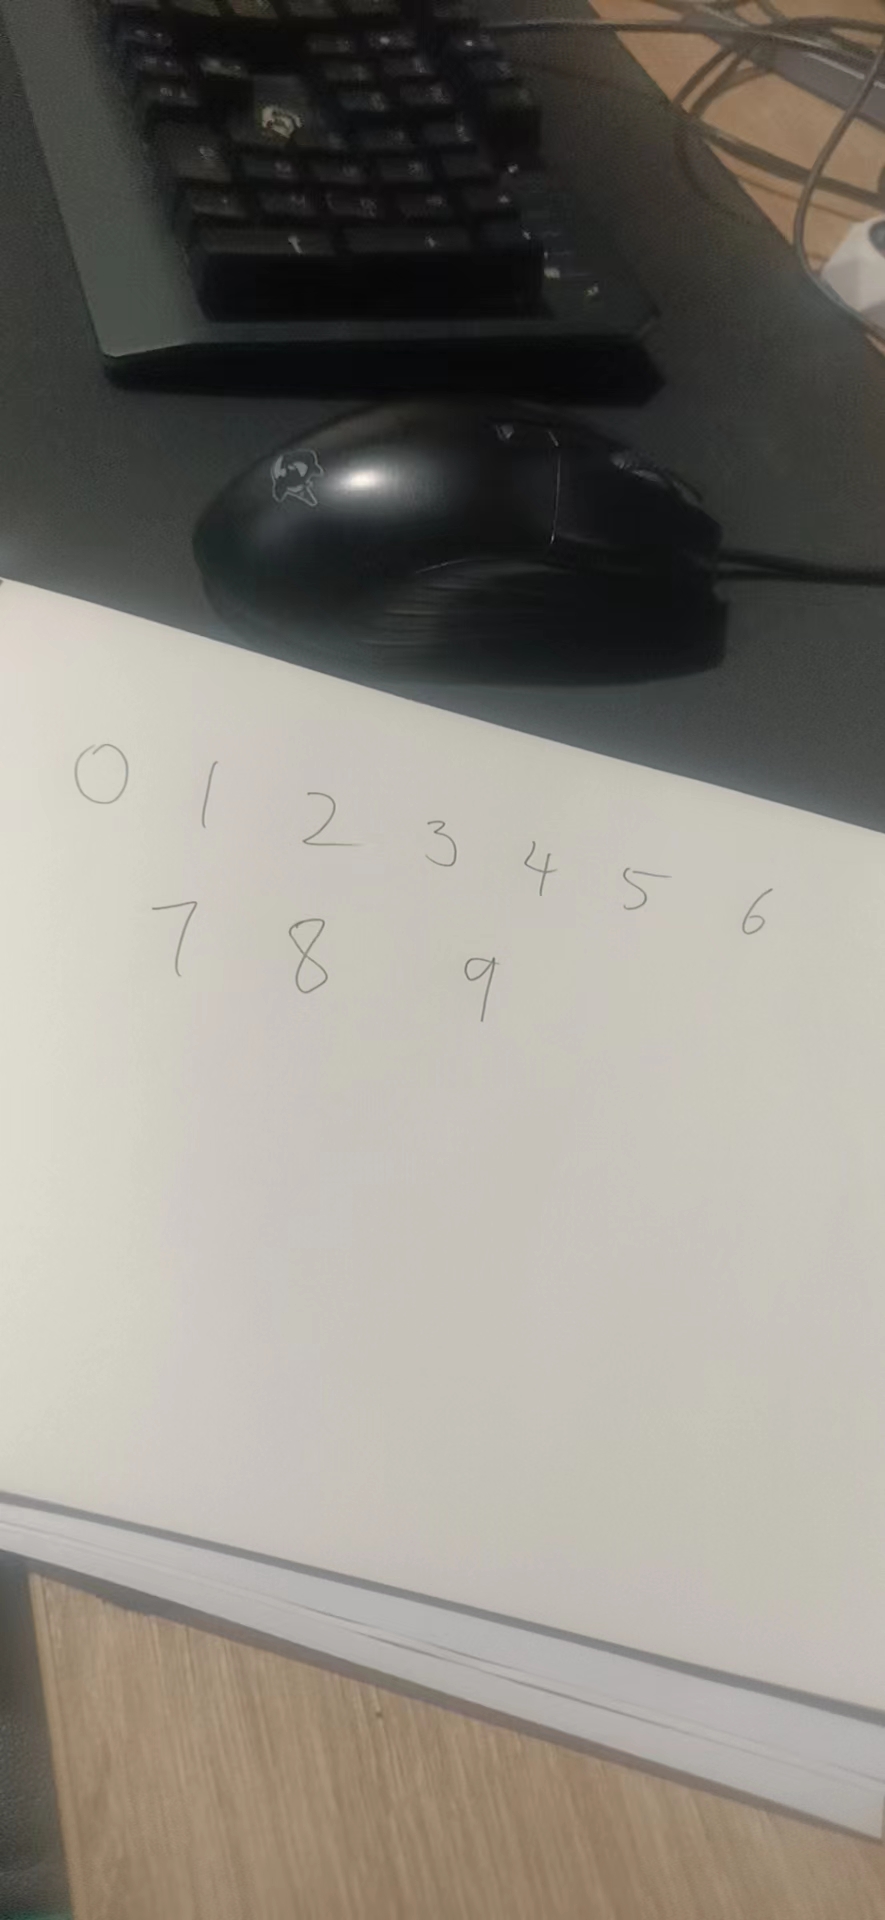 0 1 2 3 4 5 6
7 8 9